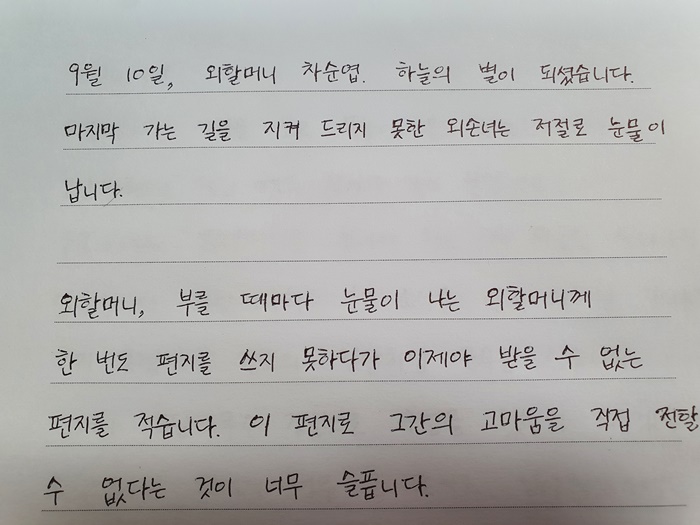 9월 10일, 외할머니 차순엽. 하늘의 별이 되셨습니다.
마지막 가는 길을 지켜 드리지 못한 외손녀는 저절로 눈물이
납니다.
외할머니, 부를 때마다 눈물이 나는 외할머니께
한 번도 편지를 쓰지 못하다가 이제야 받을 수 없는
편지를 적습니다. 이 편지로 그간의 고마움을 직접 전달
수 없다는 것이 너무 슬픕니다.